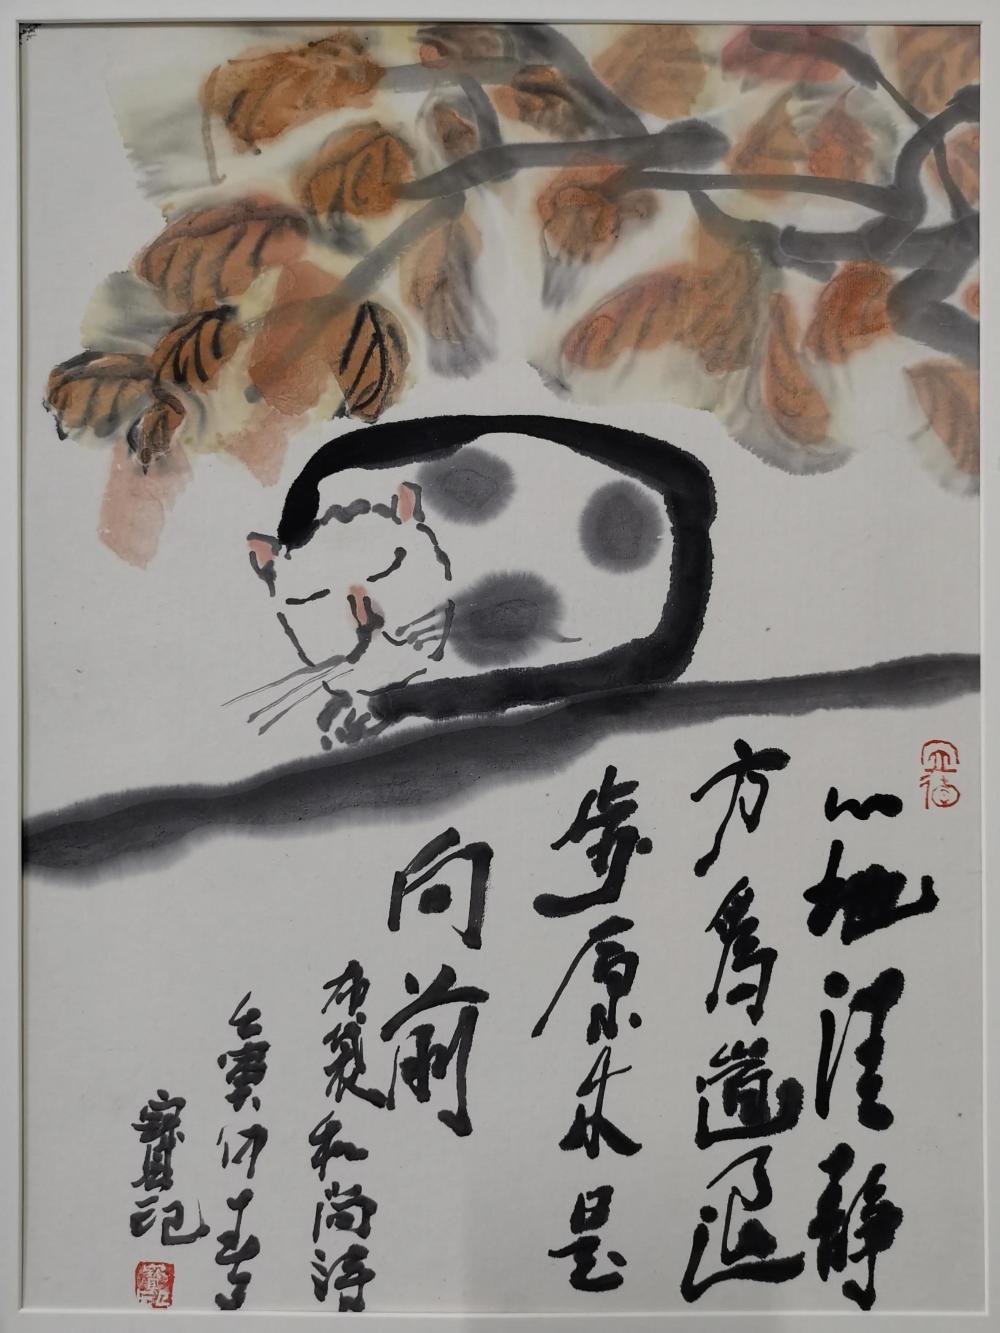 心地清静
方為道退
步原来是
向前
布袋和尚詩
壬寅仲春
寶記